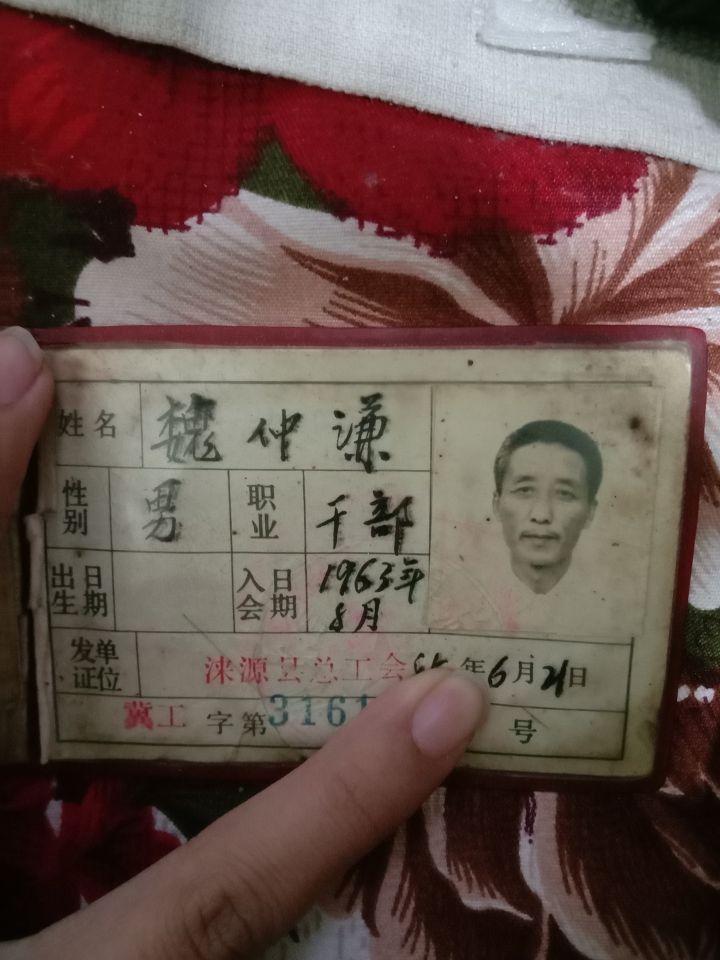 姓名 魏仲谦
性别 男 职业 干部
出生日期 入会日期 1963年8月
发证单位 涞源县总工会 年6月21日
冀工 字第3161 号